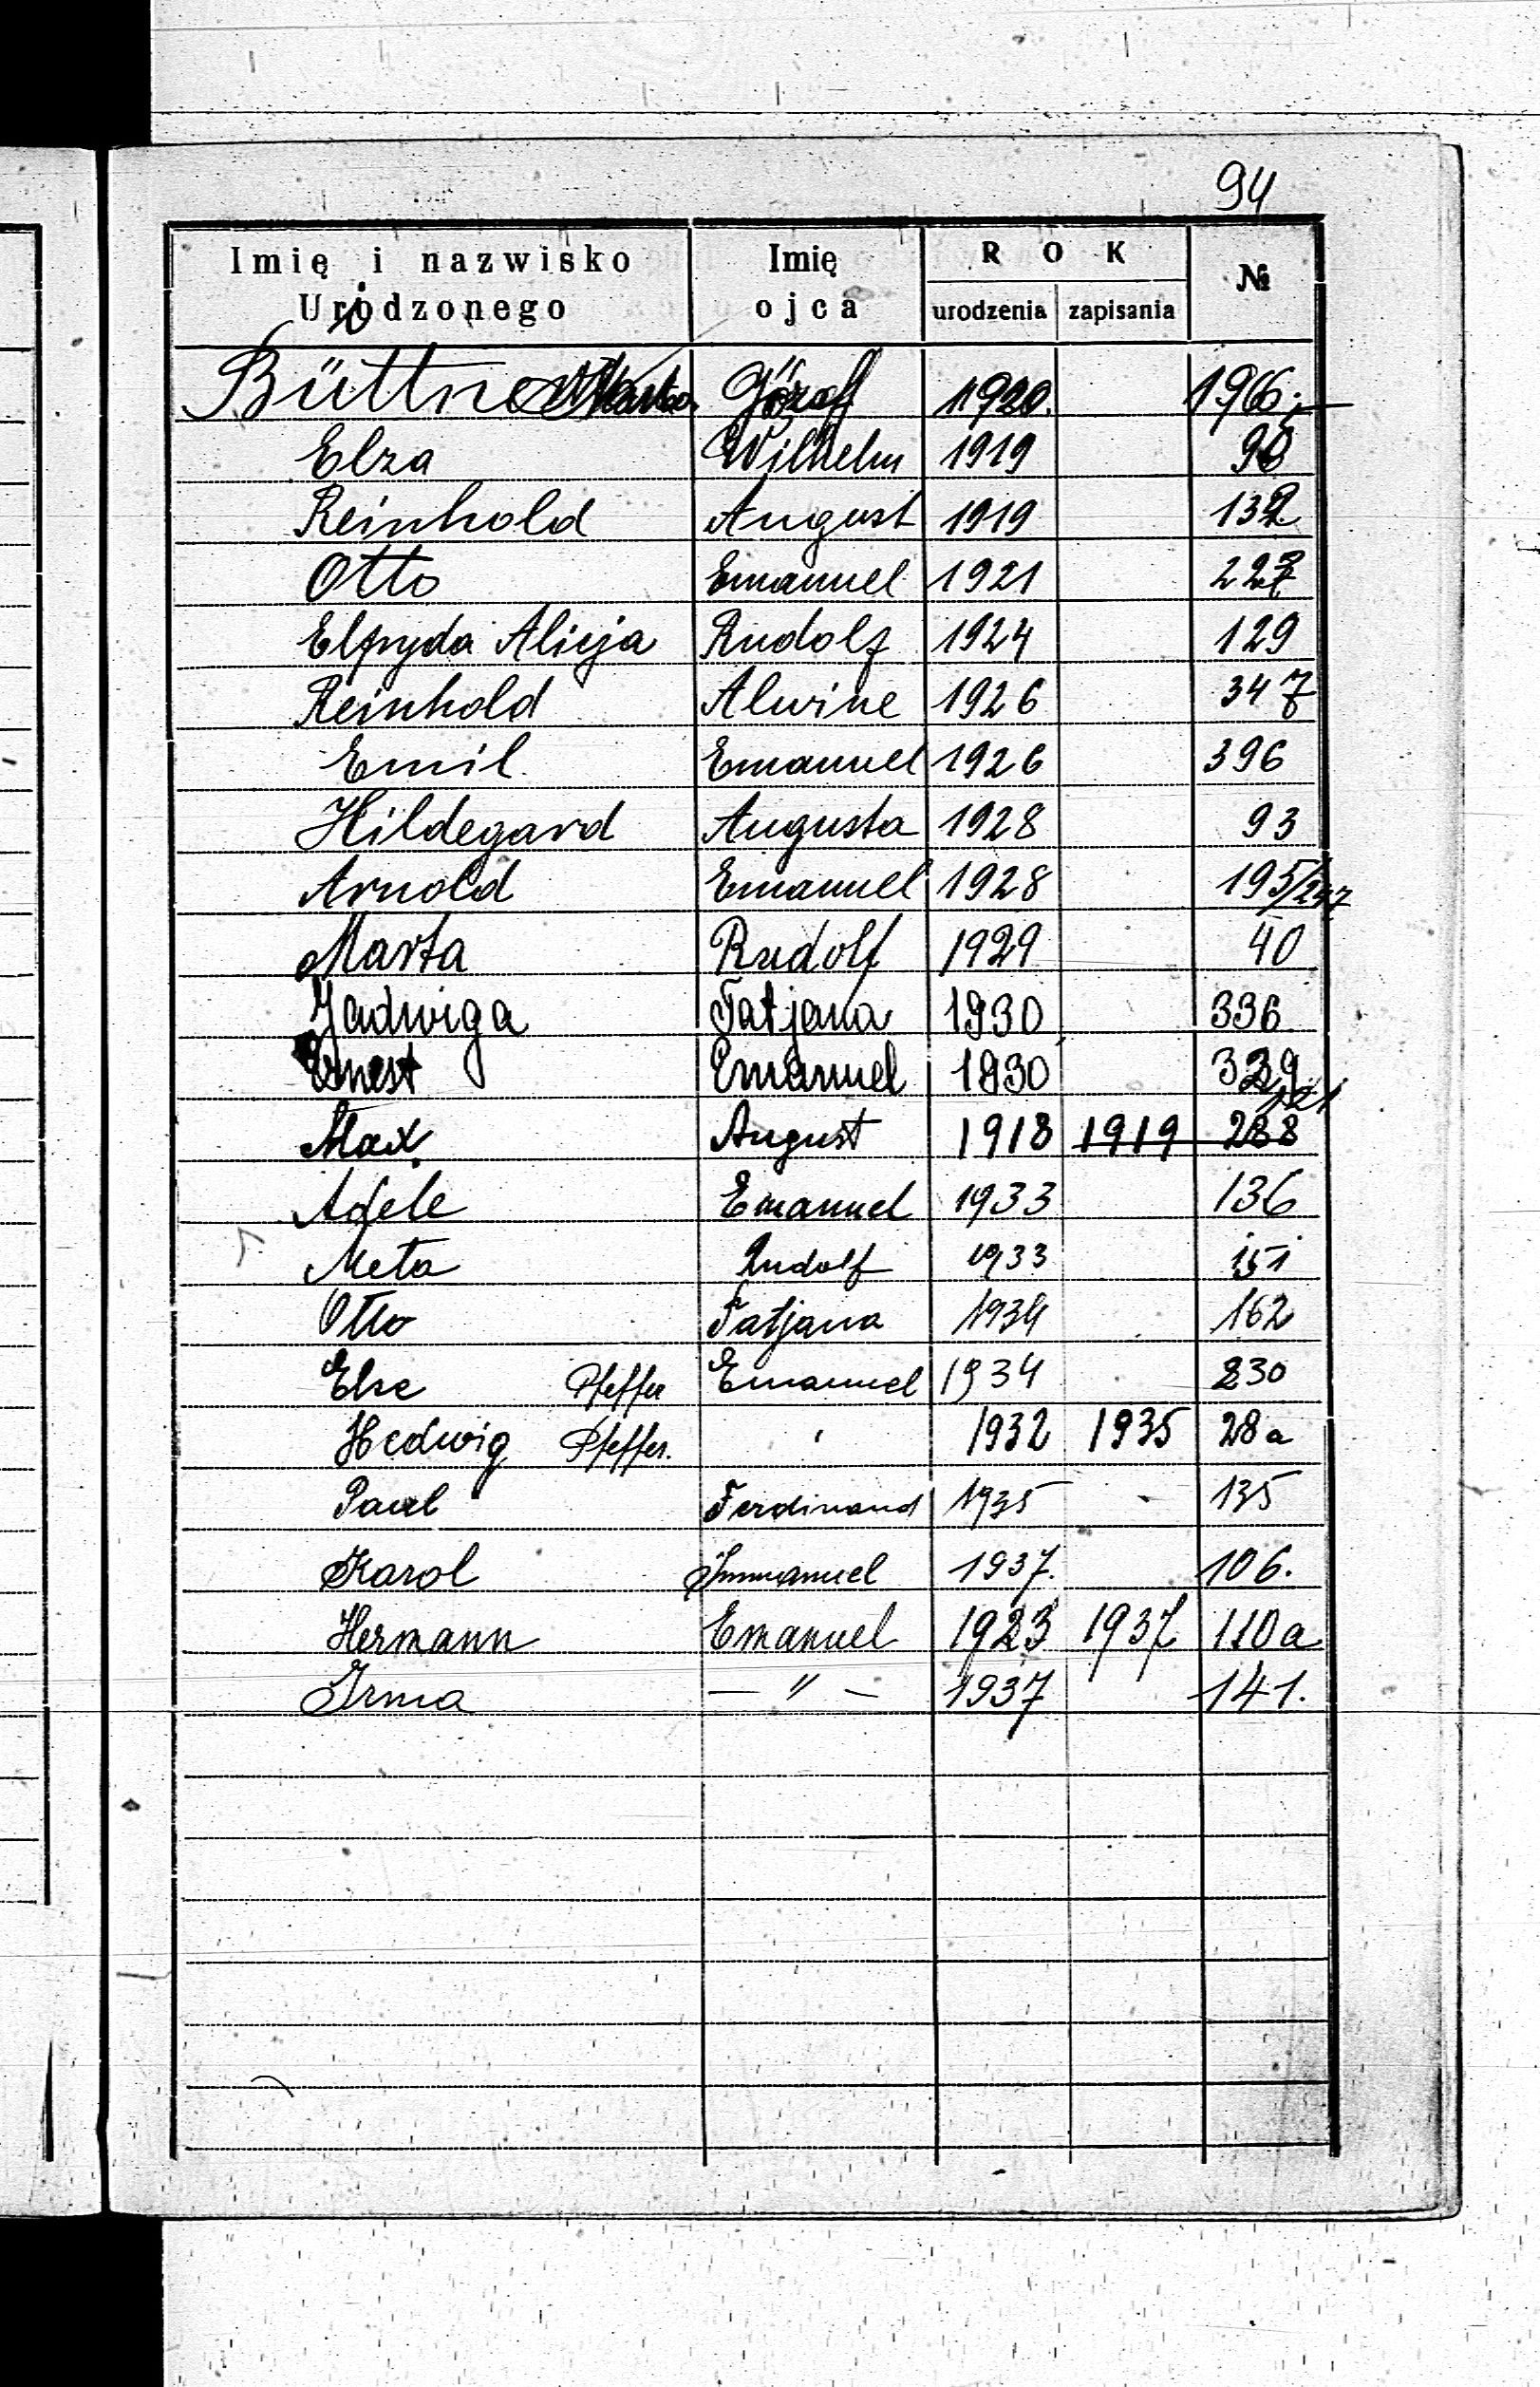 94
Imię i nazwisko Urodzonego Imię ojca ROK urodzenia zapisania №
Büttner Marta Józef 1920. 196
Elza Wilhelm 1919
Reinhold August 1919 132
Otto Emanuel 1921
Elfryda Alicja Rudolf 1924 129
Reinhold Alwine 1926 347
Emil Emanuel 1926 396
Hildegard Augusta 1928 93
Arnold Emanuel 1928 195/247
Marta Rudolf 1929 40
Jadwiga Tatjana 1930 336
Ernest Emanuel 1930 339
Max August 1918 1919 288 121
Adele Emanuel 1933 136
Meta Rudolf 1933 151
Otto Tatjana 1934 162
Else Pfeffer Emanuel 1934 230
Hedwig Pfeffer. ' 1932 1935 28a
Paul Ferdinand 1935 - 135
Karol Immanuel 1937. 106.
Hermann Emanuel 1923 1937 110a
Irma — " — 1937 141.